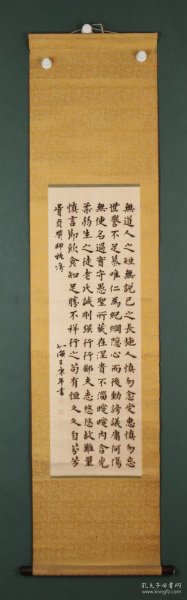 無道人之短無說己之長施人慎勿念受惠慎勿忘
世譽不足慕唯仁為紀綱隱心而後動謗議庸何傷
無使名過實守愚聖所臧在涅貴不淄曖曖內含光
柔弱生之徒老氏誡剛強行行鄙夫志悠悠故難量
慎言節飲食知足勝不祥行之苟有恆久久自芬芳
上海王康年書
孔夫子旧书网
www.kongfz.com